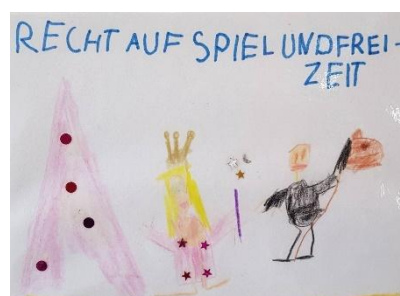 RECHT AUF SPIEL UND FREI-
ZEIT